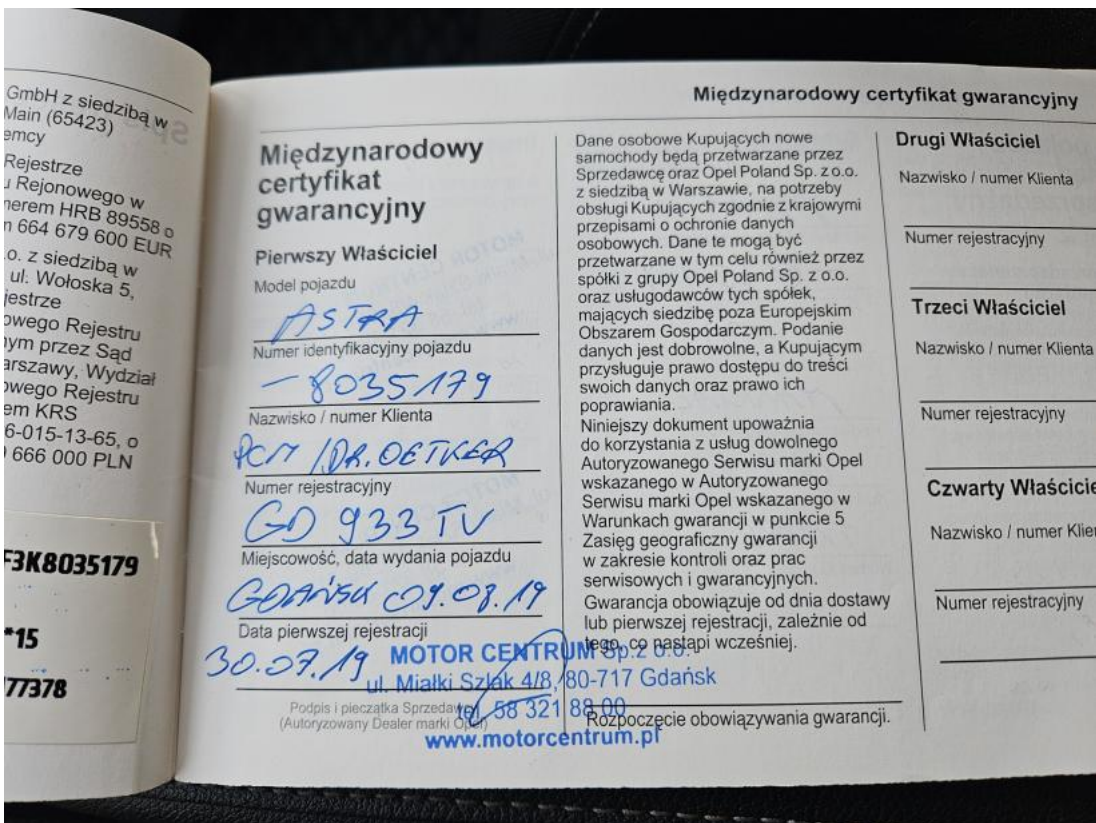 GmbH z siedzibą w
Main (65423)
emcy
Rejestrze
u Rejonowego w
nerem HRB 89558 o
664 679 600 EUR
.o. z siedzibą w
ul: Wołoska 5,
jestrze
owego Rejestru
nym przez Sąd
arszawy, Wydział
owego Rejestru
em KRS
6-015-13-65, o
666 000 PLN
F3K8035179
*15
77378
Międzynarodowy certyfikat gwarancyjny
Międzynarodowy
certyfikat
gwarancyjny
Pierwszy Właściciel
Model pojazdu
ASTRA
Numer identyfikacyjny pojazdu
-8035179
Nazwisko / numer Klienta
PCM /DR. OETKER
Numer rejestracyjny
GD 933 TV
Miejscowość, data wydania pojazdu
GDAŃSK 09.08.19
Data pierwszej rejestracji
30.07.19
MOTOR CENTRUM Sp. z o.o.
ul. Miałki Szlak 4/8, 80-717 Gdańsk
tel. 58 321 88 00
www.motorcentrum.pl
Podpis i pieczątka Sprzedawcy
(Autoryzowany Dealer marki Opel)
Dane osobowe Kupujących nowe
samochody będą przetwarzane przez
Sprzedawcę oraz Opel Poland Sp. z o.o.
z siedzibą w Warszawie, na potrzeby
obsługi Kupujących zgodnie z krajowymi
przepisami o ochronie danych
osobowych. Dane te mogą być
przetwarzane w tym celu również przez
spółki z grupy Opel Poland Sp. z o.o.
oraz usługodawców tych spółek,
mających siedzibę poza Europejskim
Obszarem Gospodarczym. Podanie
danych jest dobrowolne, a Kupującym
przysługuje prawo dostępu do treści
swoich danych oraz prawo ich
poprawiania.
Niniejszy dokument upoważnia
do korzystania z usług dowolnego
Autoryzowanego Serwisu marki Opel
wskazanego w Autoryzowanego
Serwisu marki Opel wskazanego w
Warunkach gwarancji w punkcie 5
Zasięg geograficzny gwarancji
w zakresie kontroli oraz prac
serwisowych i gwarancyjnych.
Gwarancja obowiązuje od dnia dostawy
lub pierwszej rejestracji, zależnie od
tego, co nastąpi wcześniej.
Rozpoczęcie obowiązywania gwarancji.
Drugi Właściciel
Nazwisko / numer Klienta
Numer rejestracyjny
Trzeci Właściciel
Nazwisko / numer Klienta
Numer rejestracyjny
Czwarty Właścicie
Nazwisko / numer Klien
Numer rejestracyjny